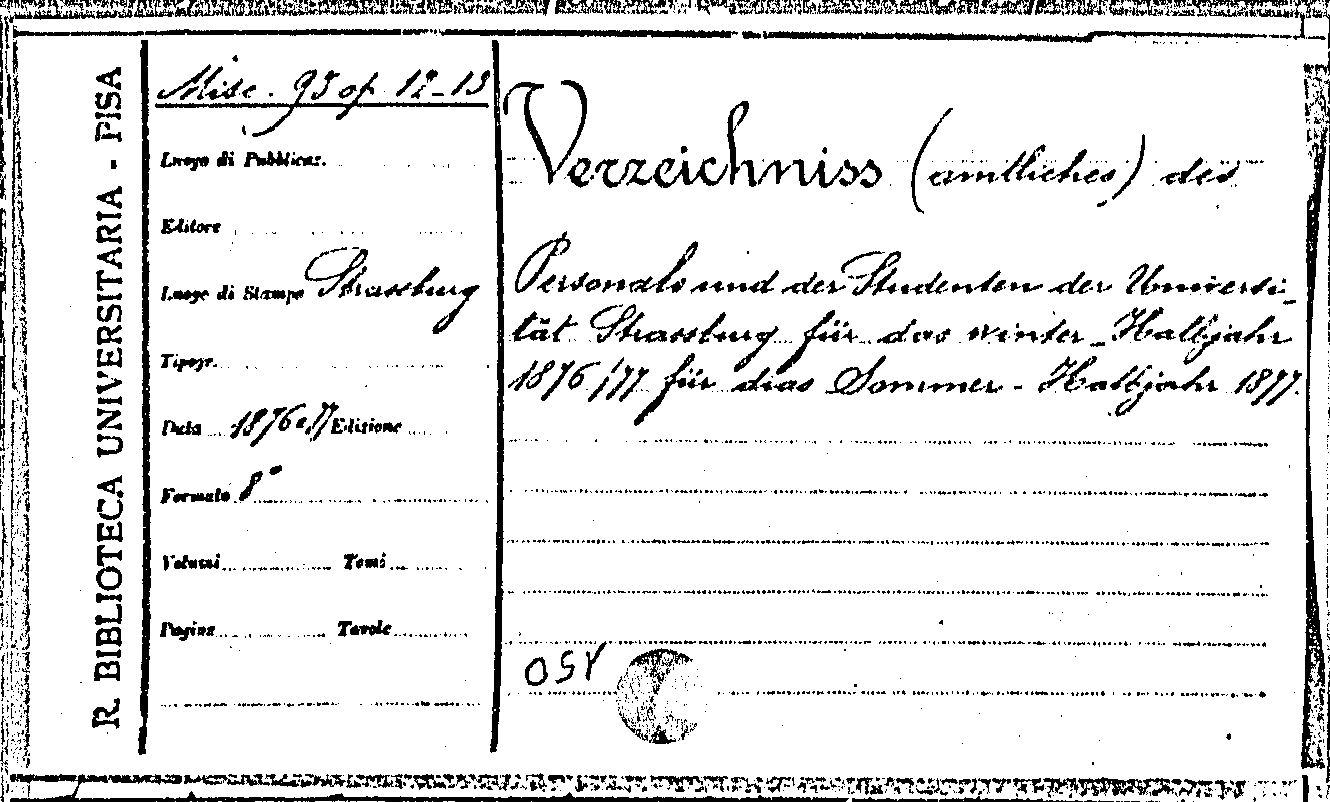 R. BIBLIOTECA UNIVERSITARIA - PISA
Misc. 95 op. 12-13
Luogo di Pubblicaz.
Editore
Luogo di Stampa Strassburg
Tipogr.
Data 1876 e 77 Edizione
Formato 8°
Volumi Tomi
Pagine Tavole
Verzeichniss (amtliches) des
Personals und der Studenten der Universi-
tät Strassburg für das winter-Halbjahr
1876/77 für das Sommer-Halbjahr 1877.
OSY